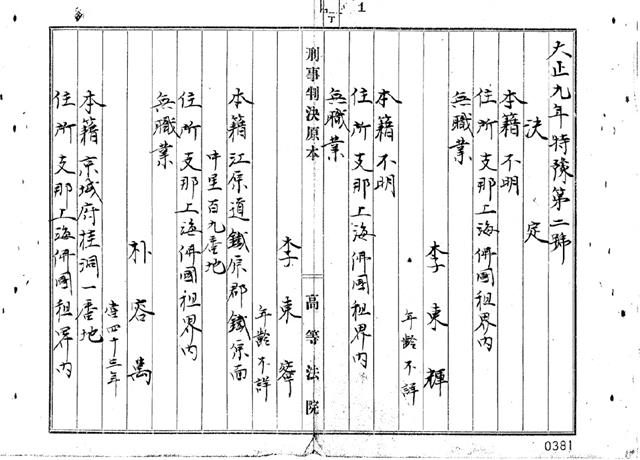 1
大正九年特豫第二號
決定
本籍 不明
住所 支那上海佛國租界内
無職業
李東輝
年齡不詳
本籍 不明
住所 支那上海佛國租界内
無職業
刑事判決原本 高等法院
李東寧
年齡不詳
本籍 江原道鐵原郡鐵原面
中里百九番地
住所 支那上海佛國租界内
無職業
朴容萬
當四十三年
本籍 京城府桂洞一番地
住所 支那上海佛國租界内
0381